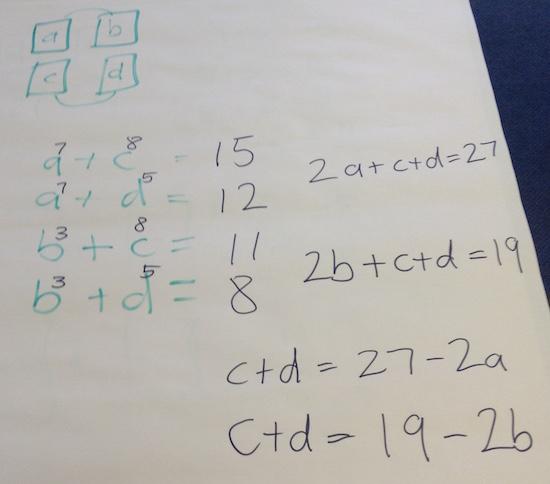 a b
c d
a⁷ + c⁸ = 15
a⁷ + d⁵ = 12
b³ + c⁸ = 11
b³ + d⁵ = 8
2a+c+d=27
2b+c+d=19
c+d = 27-2a
c+d = 19-2b